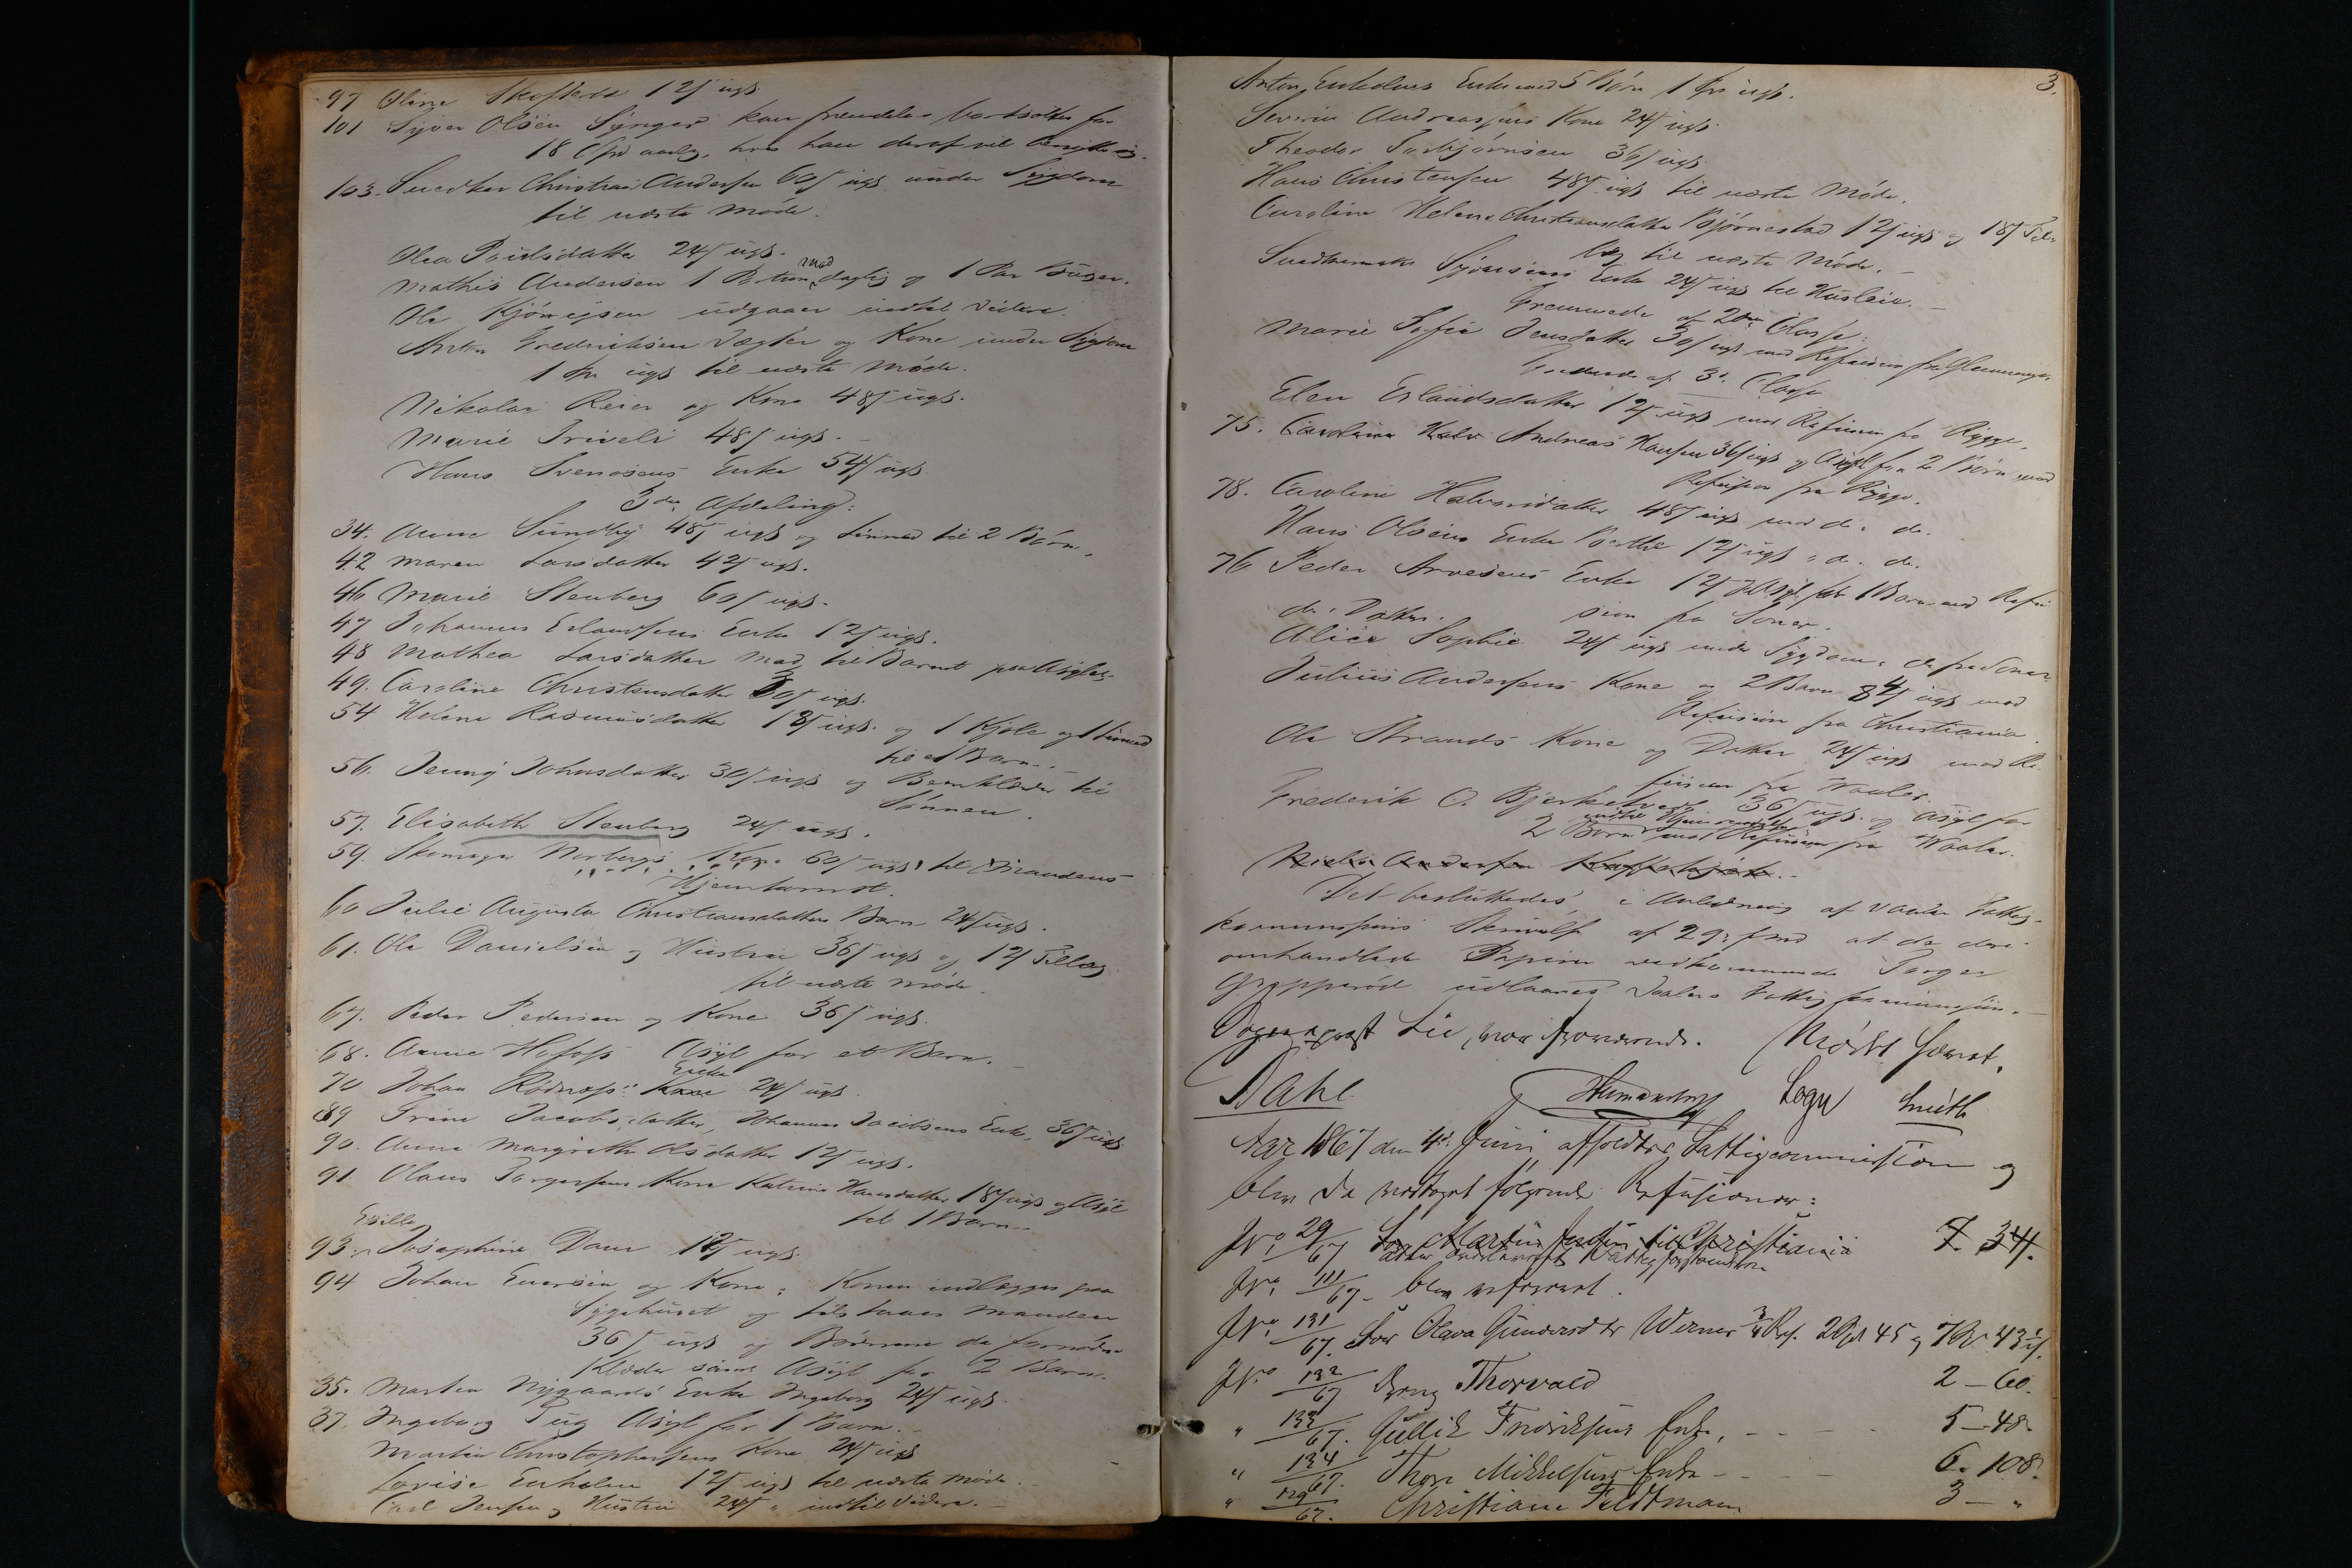 97 Oline Skofteb 12ſ ugl.
101 Syver Olsen kan fremdeles bortsættes for
18 Spd aarlig, hvis han deraf vil benytte sig.
103. Snedker Christian Andersen 60ſ ugl. under Sygdom
til næste Møde.
Olea Poulsdatter 24ſ ugl.
Mathis Andersen 1 Portion mad daglig og 1 Par Buxer.
Ole udgaaer indtil Videre.
Anton Frederiksen Vægter og Kone under Sygdom
1 ugl. til næste Møde.
Nikolai Reier og Kone 48ſ ugl.
Marie Triveli 48ſ ugl.
Hans Svensens Enke 54ſ ugl.
3die Afdeling:
34. Anne Sundby 48ſ ugl. og Linned til 2 Børn.
42 Maren Larsdatter 42ſ ugl.
46 Marie Stenberg 60ſ ugl.
47 Johannes Erlandsens Enke 12ſ ugl.
48 Mathea Larsdatter Mad til Barnet paa Asylet.
49. Caroline Christensdatter 30ſ ugl.
54 Helene Rasmusdatter 18ſ ugl. og 1 Kjole og 1 Linned
til et Barn.
56. Jenny Johnsdatter 30ſ ugl. og Benklæder til
Sønnen.
57. Elisabeth Stenberg 24ſ ugl.
59. Skomager Norbergs Kone 60ſ ugl. til Mandens
Hjemkomst.
60 Julie Augusta Christiansdatters Barn 24ſ ugl.
61. Ole Danielsen og Hustrue 36ſ ugl. og 12ſ Tillæg
til næste Møde.
67. Peder Pedersen og Kone 36ſ ugl.
68. Anne Hofoss Asyl for et Barn.
70 Johan Rødnæss Enke 24ſ ugl.
89 Trine Jacobsdatter, Johannes Jacobsens Enke, 36ſ ugl.
90. Anne Margrethe Olsdatter 12ſ ugl.
91 Olaus Torgersens Kone Katrine Hansdatter 18ſ ugl. og Asyl
til 1 Barn.
93. Josephine Dam 12ſ ugl.
94 Johan Enersen og Kone; Konen indlægges paa
Sygehuset og tilstaaes Manden
36ſ ugl. og Børnene de fornødne
Klæder samt Asyl for 2 Børn.
35. Morten Nygaards Enke Ingeborg 24ſ ugl.
37. Ingeborg Asyl for 1 Barn.
Martin Christophersens Kone 24ſ ugl.
Lovise Enholm 12ſ ugl. til næste Møde.
Carl Jensen og Hustru 24ſ " indtil Videre.
3.
Anton Enholms Enke med 5 Børn 1 ugl.
Severin Andreassens Kone 24ſ ugl.
Theodor Torbjørnsen 36ſ ugl.
Hans Christensen 48ſ ugl. til næste Møde.
Caroline Helene Christiansdatter Bjørnestad 12ſ ugl. og 18ſ Til-
læg til næste Møde.
Enke 24ſ ugl. til Husleie.
Fremmede af 2den Classe:
Marie Sofie Jensdatter 30ſ ugl. med Refusion fra Glemminge.
Fremmede af 3d. Classe
Elen Erlandsdatter 12ſ ugl. med Refusion fra Rygge.
75. Andreas Hansen 36ſ ugl. og Asyl for 2 Børn med
Refusion fra Rygge.
78. Caroline Halvorsdatter 48ſ ugl. med do. do.
Hans Olsens Enke Berthe 12ſ ugl. " do. do.
76 Peder Arvesens Enke 12ſ Asyl for 1 Barn med Refu
do. Datter. sion fra Soner.
Alice Sophie 24ſ ugl. under Sygdom, do. fra Soner.
Julius Andersens Kone og 2 Børn 84ſ ugl. med
Refusion fra Christiania.
Ole Strands Kone og Datter 24ſ ugl. med Re-
fusion fra Waaler.
Frederik O. Bjerketvedt 36ſ ugl. og Asyl for
2 Børn med Refusion fra Waaler.
Niels Andersen
Det besluttedes i Anledning af Vaaler Fattig-
kommissions Skrivelse af 29. f. md. at de deri
omhandlede Papirer vedkommende Torger
Grepperød udlaanes Vaalers Fattigkommission.
Sogneprest Lie, var fraværende. Mødet hævet.
Dahl Sogn Smith
Aar 1867 den 4d. Juni, afholdtes Fattigcommission og
blev da modtaget følgende Refusioner:
JNo. 29/67 for Martin Jensen fra Christiania 7. 34.
JNo. 111/67 blev refereret.
JNo. 131/67. for Olava Gundersdtr Werner 3/4 Ref. 2 Spd 45 og 7 Spd 43 ſ.
JNo 132/67 Dreng Thorvald 2 — 60.
" 133/67. Gullik Fredriksens Enke, 5 — 48.
" 134/67. Thore Mikkelsens Enke 6. 108.
" 129/67. Christiane Feldtmann 3 — "